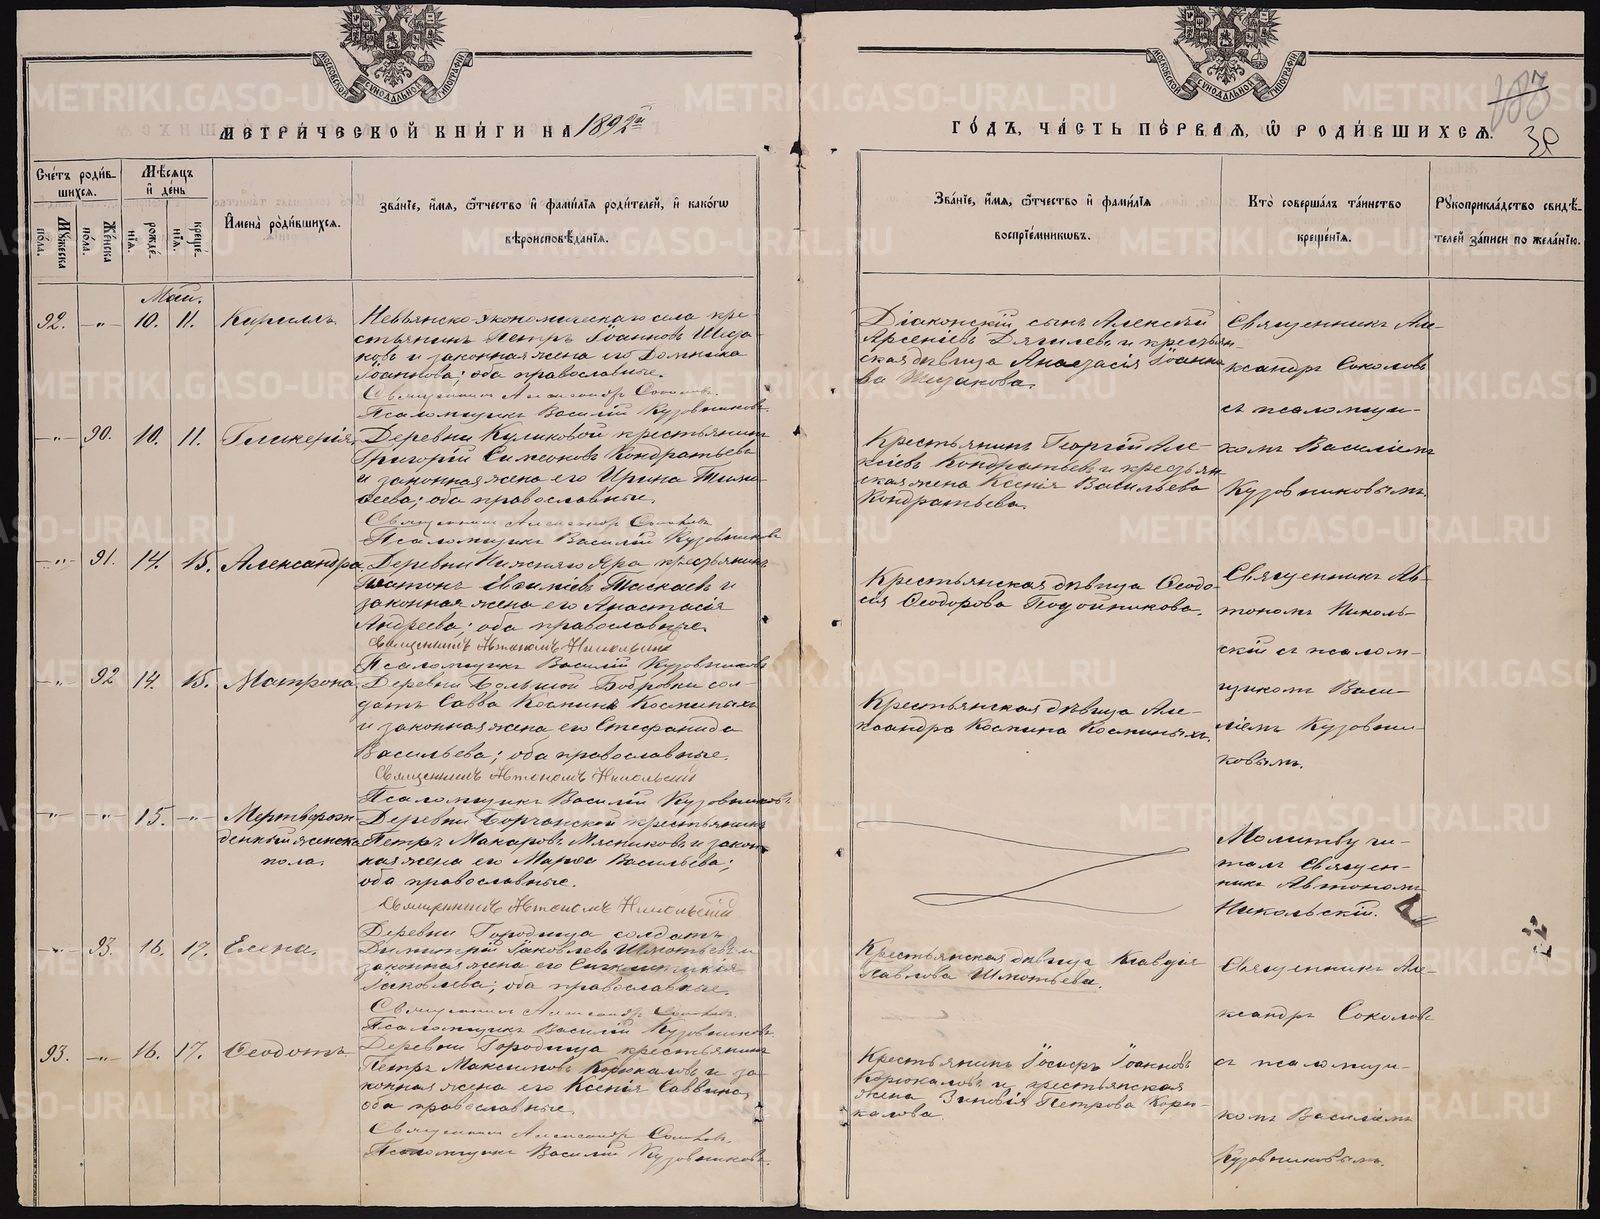 МОСКОВСКОЙ СѴНОДАЛЬНОЙ ТИПОГРАФІИ
МОСКОВСКОЙ СѴНОДАЛЬНОЙ ТИПОГРАФІИ
МЕТРИ́ЧЕСКОЙ КНИ́ГИ НА 1892й
ГО́ДЪ, ЧА́СТЬ ПЕ́РВАЯ, Ѿ РОДИ́ВШИХСЯ.
Сче́тъ роди́в-
шихся.
Мѣ́сяцъ
и҆ де́нь
Му́жеска
по́ла.
Же́нска
по́ла.
рожде́-
нія.
креще́-
нія.
И҆мена̀ роди́вшихся.
Зва́ніе, и҆́мя, ѻ҆́тчество и҆ фами́лія роди́телей, и҆ како́гѡ
вѣроисповѣ́данія.
Зва́ніе, и҆́мя, ѻ҆́тчество и҆ фами́лія
воспріе́мникѡвъ.
Кто̀ соверша́лъ та́инство
креще́нія.
Рꙋкоприкла́дство свидѣ́-
телей за́писи по жела́нію.
Май.
92. -"- 10. 11. Кириллъ.
Невьянско-экономическаго села кре-
стьянинъ Петръ Іоанновъ Шиша-
ковъ и законная жена его Домника
Іоаннова; оба православные.
Священникъ Александръ Соколовъ.
Псаломщикъ Василій Кузовниковъ.
Діаконскій сынъ Алексѣй
Арсеніевъ Дягилевъ и крестьян-
ская дѣвица Анастасія Іоанно-
ва Шишакова.
Священникъ Але-
ксандръ Соколовъ
съ псаломщи-
комъ Василіемъ
Кузовниковымъ.
-"- 90. 10. 11. Гликерія.
Деревни Куликовой крестьянинъ
Григорій Симеоновъ Кондратьевъ
и законная жена его Ирина Тимо-
феева; оба православные.
Священникъ Александръ Соколовъ.
Псаломщикъ Василій Кузовниковъ.
Крестьянинъ Георгій Але-
ксіевъ Кондратьевъ и крестьян-
ская жена Ксенія Васильева
Кондратьева.
-"- 91. 14. 15. Александра.
Деревни Нижняго Яра крестьянинъ
Платонъ Таскаевъ и
законная жена его Анастасія
Андреева; оба православные.
Священникъ Автономъ Никольскій
Псаломщикъ Василій Кузовниковъ
Крестьянская дѣвица Ѳеодо-
сія Ѳеодорова Подойникова.
Священникъ Ав-
тономъ Николь-
скій съ псалом-
щикомъ Васи-
ліемъ Кузовни-
ковымъ.
-"- 92 14. 15. Матрона.
Деревни Большой Бобровки сол-
датъ Савва Косминъ Косминыхъ
и законная жена его Стефанида
Васильева; оба православные.
Священникъ Автономъ Никольскій
Псаломщикъ Василій Кузовниковъ.
Крестьянская дѣвица Але-
ксандра Космина Косминыхъ.
-"- -"- 15. -"- Мертворож-
денный женска
пола.
Деревни крестьянинъ
Петръ Макаровъ Мясниковъ и закон-
ная жена его Марѳа Васильева;
оба православные.
Священникъ Автономъ Никольскій
Молитву чи-
талъ Священ-
никъ Автономъ
Никольскій.
-"- 93. 16. 17. Елена.
Деревни Городища солдатъ
Димитрій Іаковлевъ Шмотьевъ и
законная жена его Сигклитикія
Іаковлева; оба православные.
Священникъ Александръ Соколовъ.
Псаломщикъ Василій Кузовниковъ.
Крестьянская дѣвица Клавдія
Павлова Шмотьева.
Священникъ Але-
ксандръ Соколовъ
съ псаломщи-
комъ Василіемъ
Кузовниковымъ.
93. -"- 16. 17. Ѳеодотъ.
Деревни Городища крестьянинъ
Петръ Максимовъ Корюкаловъ и за-
конная жена его Ксенія Саввина;
оба православные.
Священникъ Александръ Соколовъ.
Псаломщикъ Василій Кузовниковъ.
Крестьянинъ Іосифъ Іоанновъ
Корюкаловъ и крестьянская
жена Зиновія Петрова Корю-
калова.
METRIKI.GASO-URAL.RU